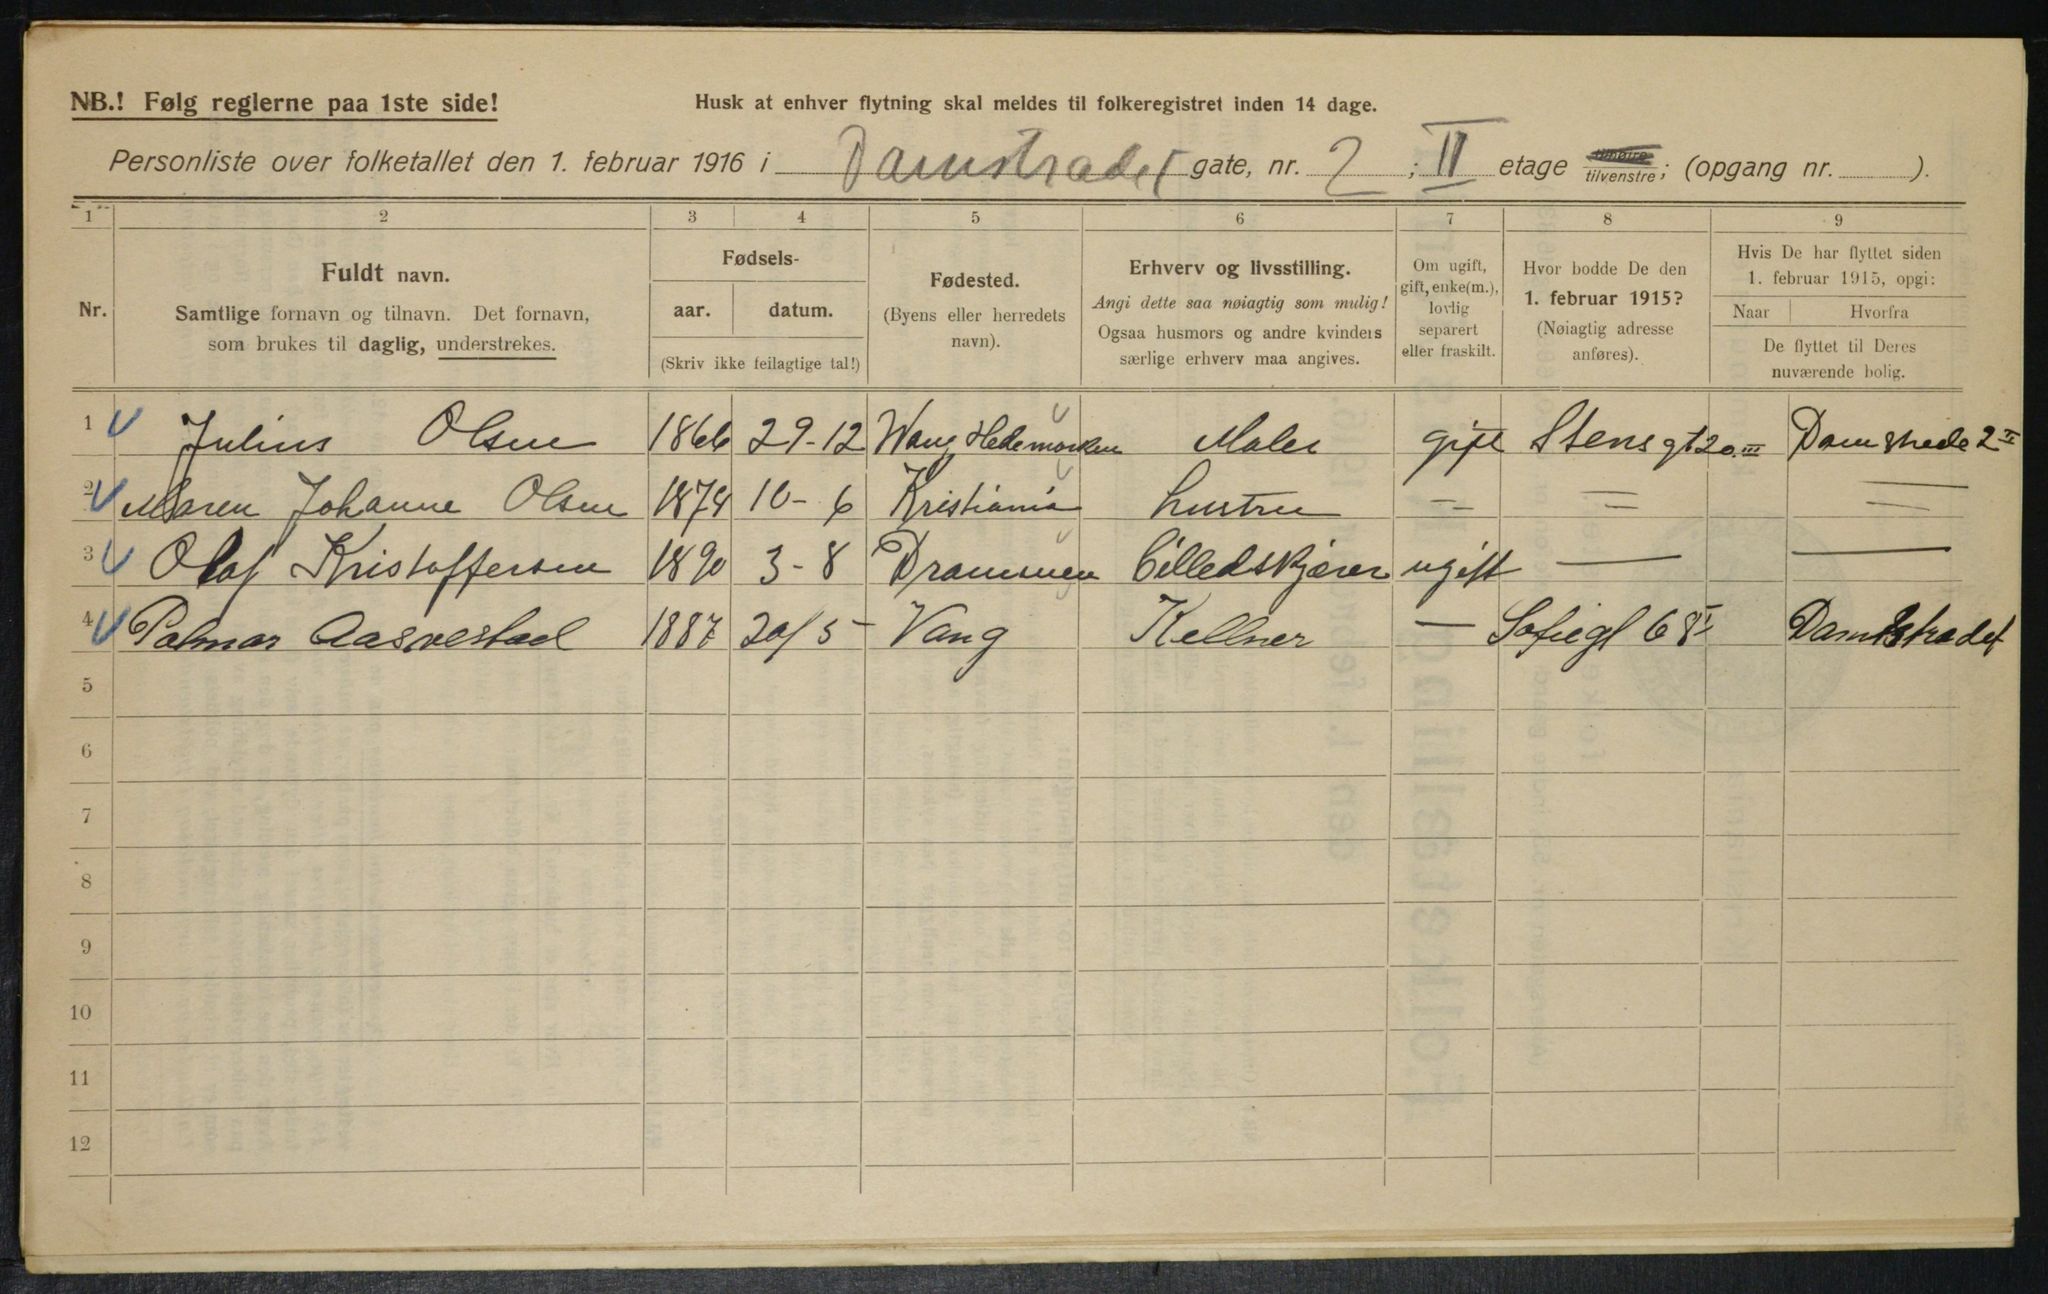 NB.! Følg reglerne paa 1ste side! Husk at enhver flytning skal meldes til folkeregistret inden 14 dage.
Personliste over folketallet den 1. februar 1916 i Damstradet gate, nr. 2 ; II etage tilvenstre; (opgang nr. ).
1 2 3 4 5 6 7 8 9
Nr.
Fuldt navn.
Samtlige fornavn og tilnavn. Det fornavn,
som brukes til daglig, understrekes.
Fødsels-
aar. datum.
(Skriv ikke feilagtige tal!)
Fødested.
(Byens eller herredets
navn).
Erhverv og livsstilling.
Angi dette saa nøiagtig som mulig!
Ogsaa husmors og andre kvinders
særlige erhverv maa angives.
Om ugift,
gift, enke(m.),
lovlig
separert
eller fraskilt.
Hvor bodde De den
1. februar 1915?
(Nøiagtig adresse
anføres).
Hvis De har flyttet siden
1. februar 1915, opgi:
Naar Hvorfra
De flyttet til Deres
nuværende bolig.
1 Julius Olsen 1866 29-12 Wang Hedemarken Maler gift Stensgt 20 III Damstrede 2 II
2 Maren Johanne Olsen 1874 10-6 Kristiania hustru — = =
3 Olaf Kristoffersen 1890 3-8 Drammen Billedskjærer ugift — —
4 Palmar Aasvestad 1887 20/5 Vang Kellner — Sofiegt 68 I Damstradet
5
6
7
8
9
10
11
12